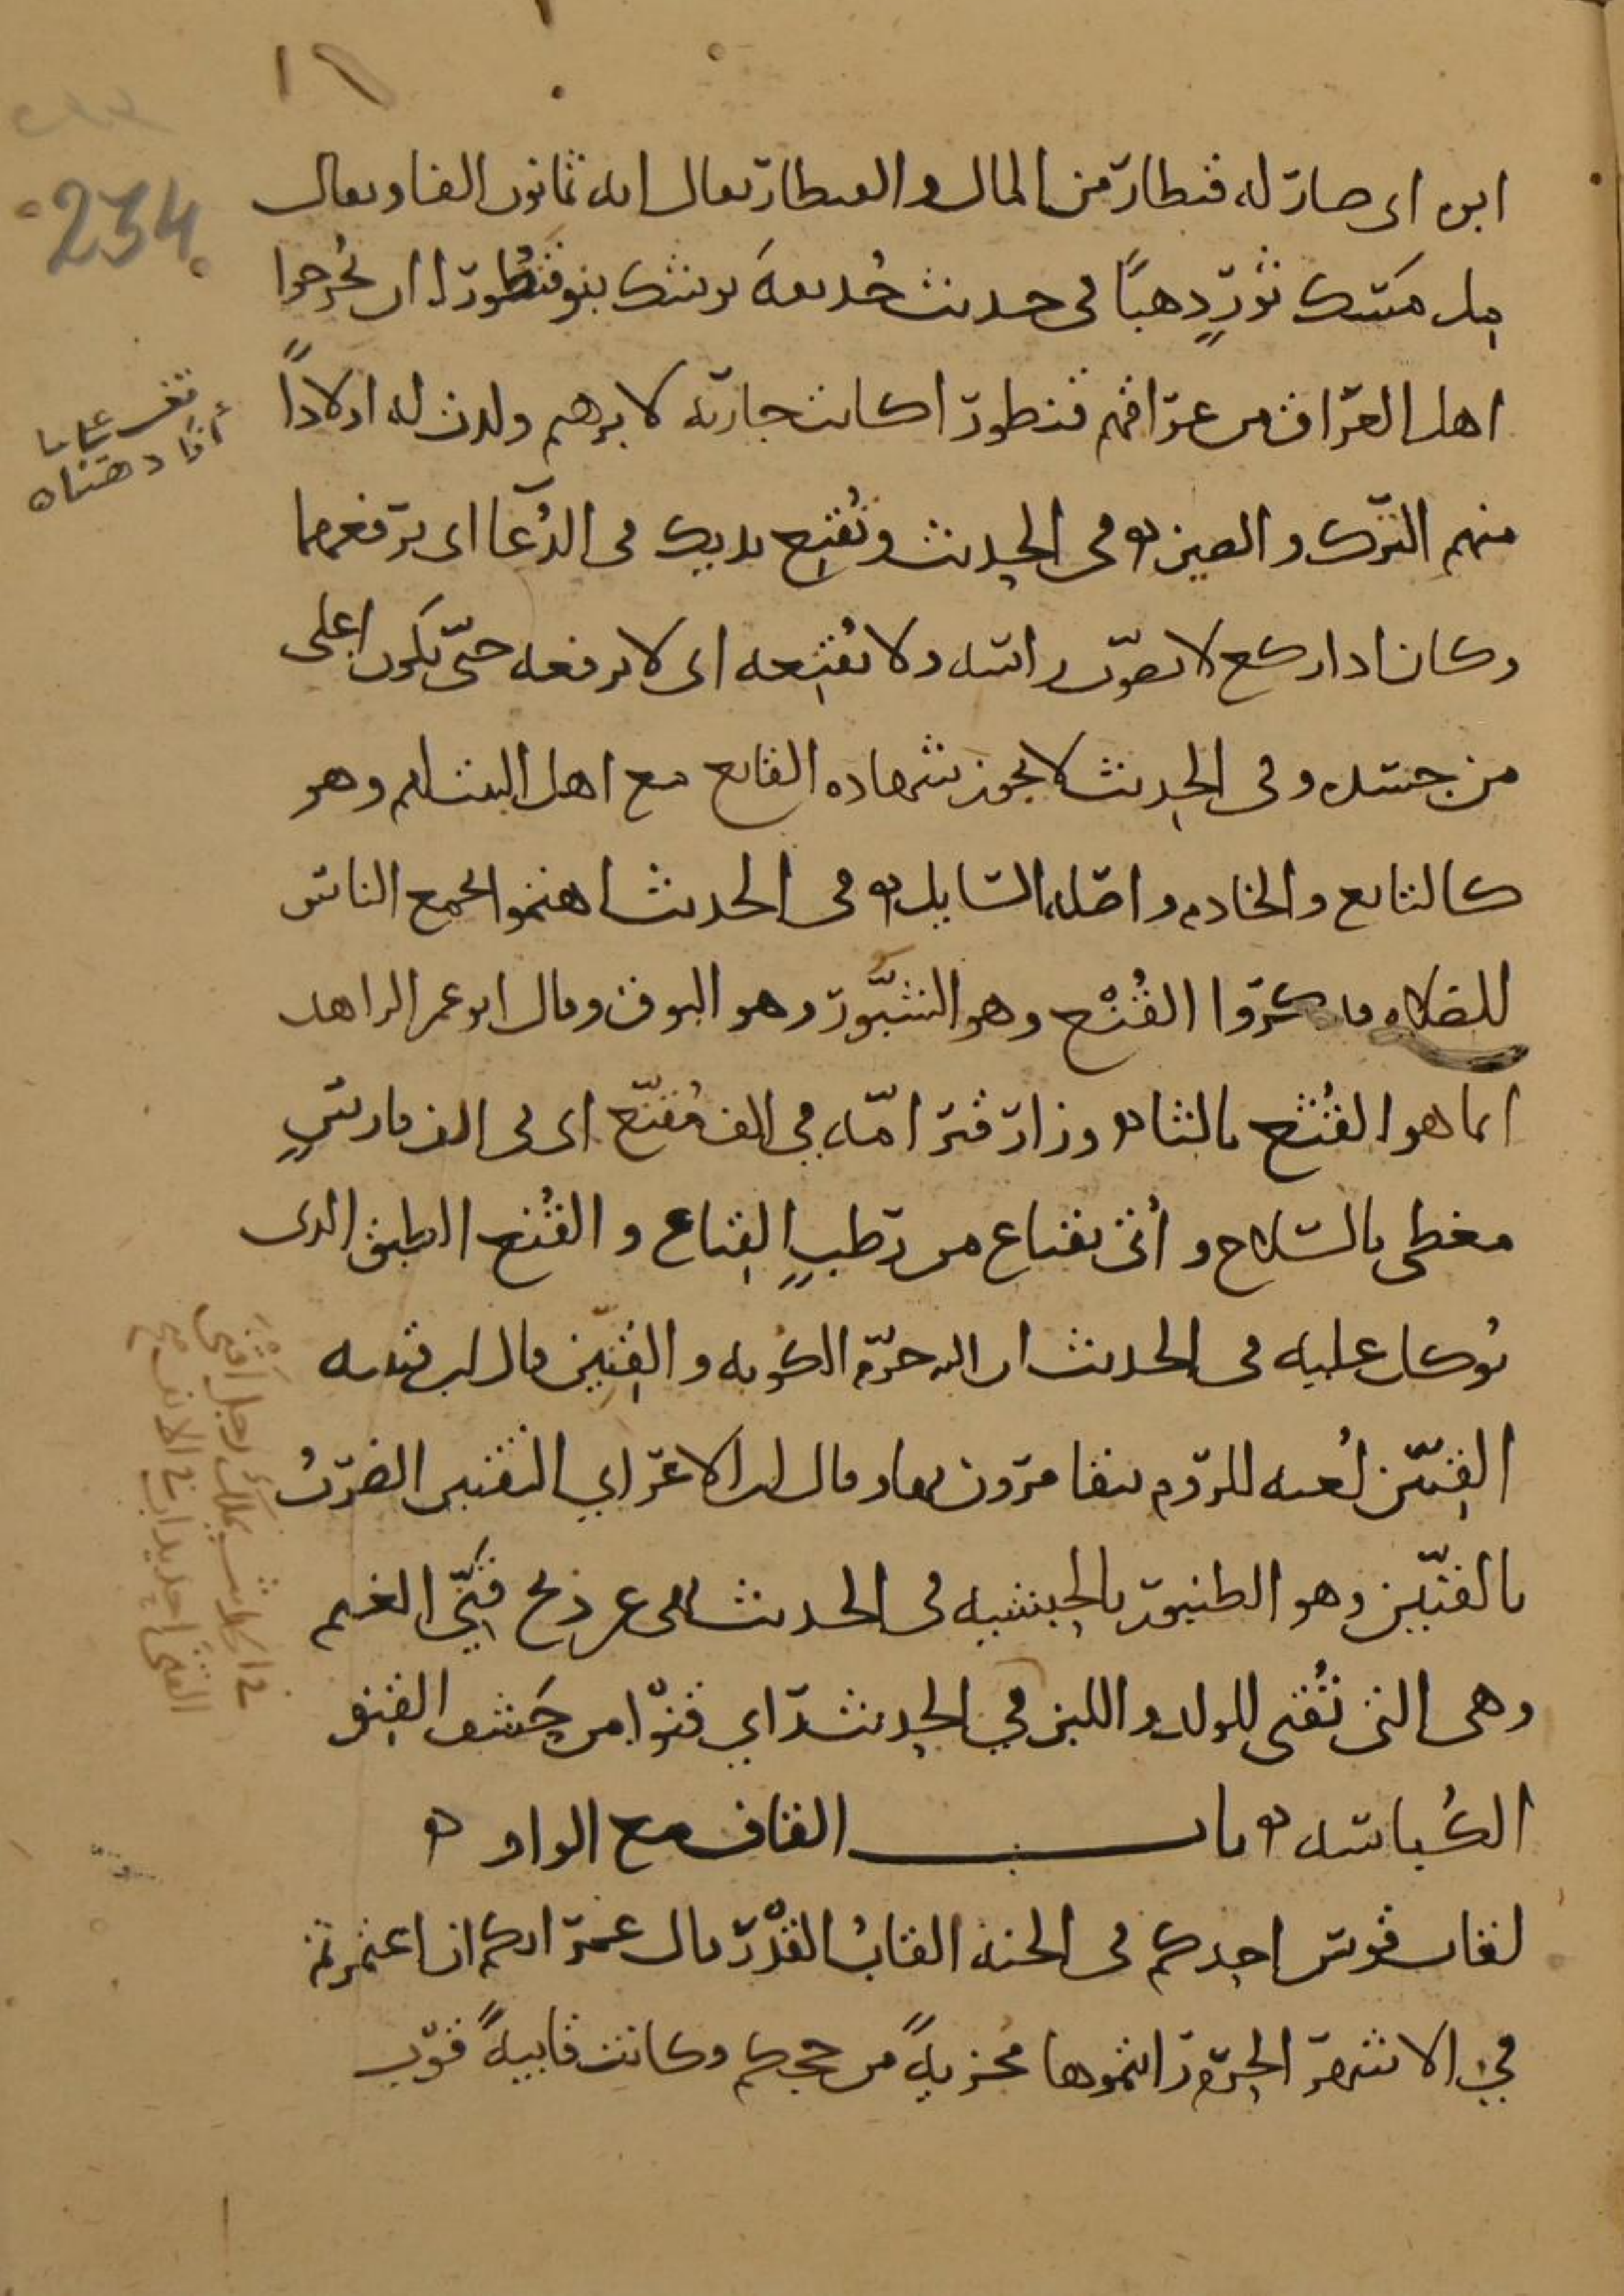 234
ابوه اى صار له قنطار من المال والقنطار يقال انه ثمانون الفا ويقال
مل مسك ثور ذهبًا فى حديث حذيفة يوشك بنو قنطورا ان يخرجوا
اهل العراق من عراقهم قنطورا كانت جارية لابرهيم ولدت له اولادًا
منهم الترك والصين ه فى الحديث وتُقنِع يديك فى الدُعا اى ترفعهما
وكان اذا ركع لا يصوّب راسه ولا يُقنِعه اى لا يرفعه حتّى يكون اعلى
من جسده وفى الحديث لا يجوز شهاده القانع مع اهل البيت لهم وهو
كالتابع والخادم واصله السايل ه فى الحديث اهتموا لجمع الناس
للصلاه فذكروا القُنْع وهو الشبّور وهو البوق وقال ابو عمر الزاهد
انما هو القُثع بالثا ه وزار قبر امّه فى الف مُقنّع اى فى الف فارس
مغطى بالسلاح و أتى بقناع من رطبٍ القناع و القُنع الطبق الذى
يُوكل عليه فى الحديث ان الله حرّم الكوبه و القِنّين قال ابن قتيبه
القِنّين لُعبه للروم يتقامرون بها وقال ابن الاعرابي التقنين الضربُ
بالقنّين وهو الطنبور بالحبشيه فى الحديث نهى عن ذبح قَنِيّ الغنم
وهى التى تُقنى للولد و اللبن في الحديث راي قنوًا من حَشف القنو
الكُباسه ه باب القاف مع الواو ه
لقاب قوس احدكم فى الجنه القابُ القَدْر قال عمر انكم ان اعتمرتم
في الاشهر الحرم رايتموها مجزيةً من حجكم وكانت قابيةَ قوب